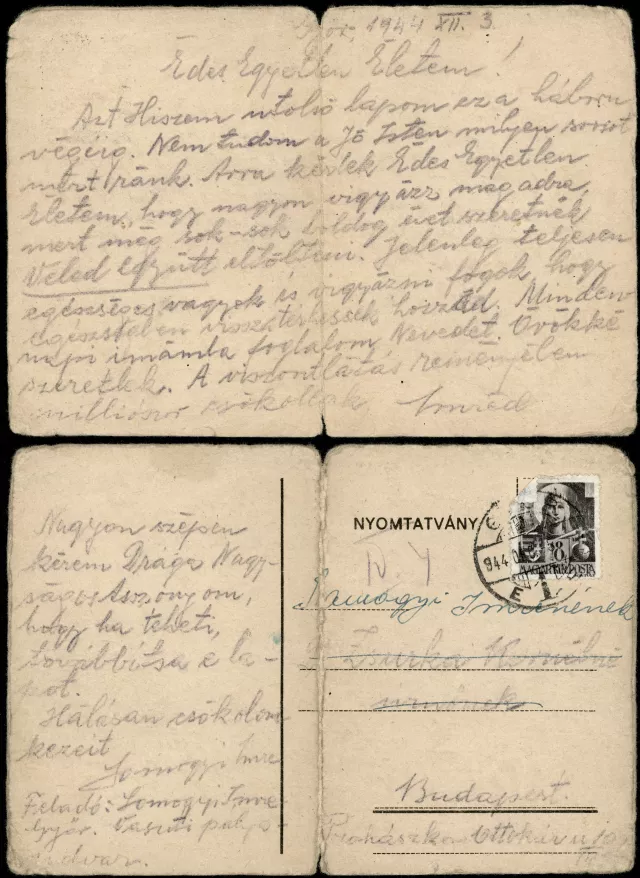 Győr, 1944 XII. 3.
Édes Egyetlen Életem!
Azt Hiszem utolsó lapom ez a háboru
végéig. Nem tudom a Jó Isten milyen sorsot
mért ránk. Arra kérlek Édes Egyetlen
Életem, hogy nagyon vigyázz magadra,
mert még sok-sok boldog évet szeretnék
Veled együtt eltölteni. Jelenleg teljesen
egészséges vagyok és vigyázni fogok, hogy
egészségben visszatérhessek hozzád. Minden
napi imámba foglalom Nevedet. Örökké
szeretlek. A viszontlátás reményében
milliószor csókollak, Imréd
Nagyon szépen
kérem Drága Nagy-
ságos Asszonyom,
hogy ha teheti,
továbbítsa e la-
pot.
Hálásan csókolom
kezeit
Somogyi Imre
Feladó: Somogyi Imre
Győr. Vasuti pálya-
udvar.
NYOMTATVÁNY
IV. 4
18
MAGYAR KIR. POSTA
944
Somogyi Imrénének
Zsurka Kornélné
urnőnek
Budapest.
Prohászka Ottokár u.
IV.